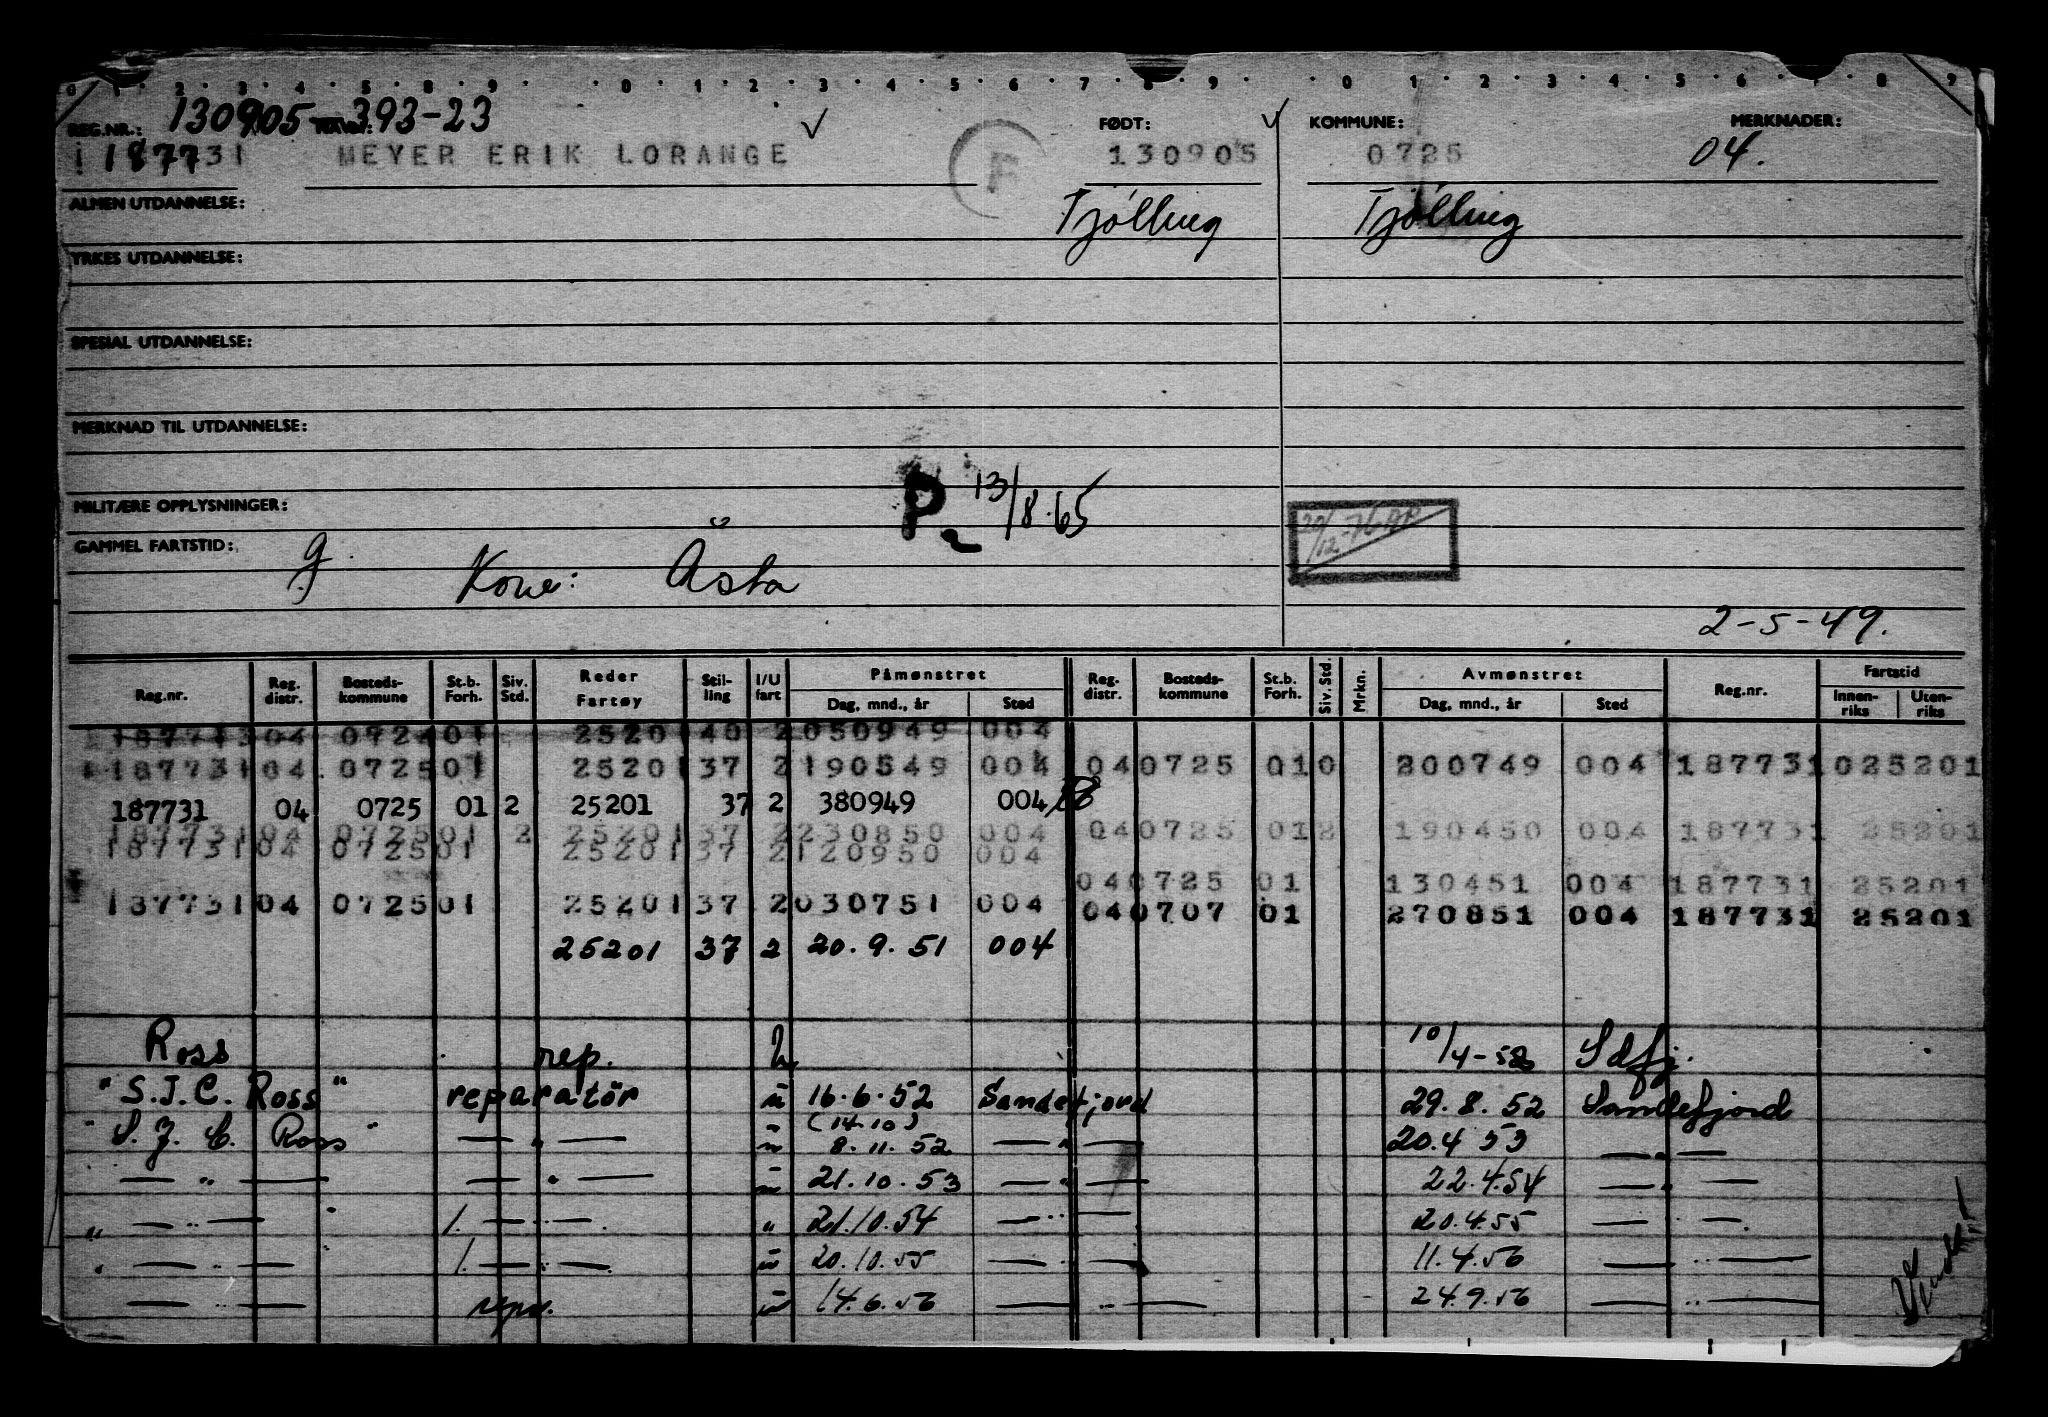 0 1 2 3 4 5 8 9 0 1 2 3 4 5 6 7 8 9 0 1 2 3 4 5 6 8 9
130905-393-23
REG.NR.: FØDT: KOMMUNE: MERKNADER:
187731 MEYER ERIK LORANGE F 130905 0725 04.
ALMEN UTDANNELSE: Tjölling Tjölling
YRKES UTDANNELSE:
SPESIAL UTDANNELSE:
MERKNAD TIL UTDANNELSE:
MILITÆRE OPPLYSNINGER: P. 13/8.65
20/12-76
GAMMEL FARTSTID: g. Kone: Åsta
2-5-49.
Reg.nr. Reg. distr. Bosteds-kommune St.b. Forh. Siv. Std. Reder Fartøy Stil-ling I/U fart Påmønstret Dag, mnd., år Sted Reg. distr. Bosteds-kommune St.b. Forh. Siv. Std. Mrkn. Avmønstret Dag, mnd., år Sted Reg.nr. Fartstid Innen-riks Uten-riks
04 0724 01 25201 40 2 050949 004
187731 04 0725 01 25201 37 2 190549 004 04 0725 01 0 200749 004 187731 025201
187731 04 0725 01 2 25201 37 2 380949 004
187731 04 0725 01 2 25201 37 2 230850 004 04 0725 01 2 190450 004 187731 25201
187731 04 0725 01 25201 37 2 120950 004
04 0725 01 130451 004 187731 25201
187731 04 0725 01 25201 37 2 030751 004 04 0707 01 270851 004 187731 25201
25201 37 2 20.9.51 004
Ross rep. 10/4-52 Sdfj.
"S.J.C. Ross" reparatör u 16.6.52 Sandefjord 29.8.52 Sandefjord
"S.J.C. Ross" — " — " (14.10) 8.11.52 — " — 20.4 53 — " —
— " — — " — " 21.10.53 — " — 22.4.54 — " —
" — " — " — " — " 21.10.54 — " — 20.4.55 — " —
" — " — — " — " 20.10.55 — " — 11.4.56 — " —
— " — repr. " 14.6.56 — " — 24.9.56 — " —